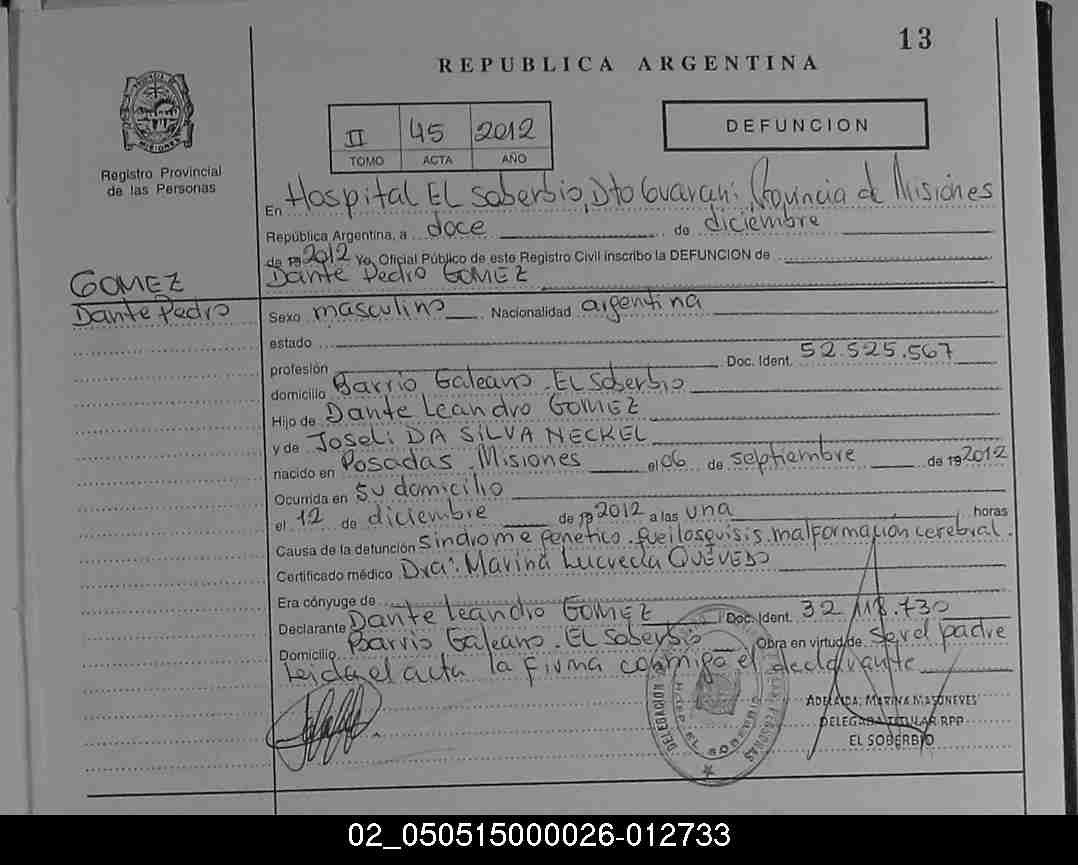 13
REPUBLICA ARGENTINA
MISIONES
Registro Provincial
de las Personas
II 45 2012
TOMO ACTA AÑO
DEFUNCION
En Hospital EL Soberbio, Dto Guaraní Provincia de Misiones
República Argentina, a doce de diciembre
de 19 2012 Yo, Oficial Público de este Registro Civil inscribo la DEFUNCION de
Dante Pedro GOMEZ
GOMEZ
Dante Pedro
Sexo masculino Nacionalidad argentina
estado
profesión Doc. Ident. 52.525.567
domicilio Barrio Galeano. EL Soberbio
Hijo de Dante Leandro GOMEZ
y de Joseli DA SILVA NECKEL
nacido en Posadas, Misiones el 06 de septiembre de 19 2012
Ocurrida en Su domicilio
el 12 de diciembre de 19 2012 a las una horas
Causa de la defunción Sindrome genetico. malformacion cerebral.
Certificado médico Dra: Marina Lucrecia QUEVEDO
Era cónyuge de
Declarante Dante Leandro GOMEZ Doc. Ident. 32.118.730
Domicilio Barrio Galeano. EL Soberbio Obra en virtud de ser el padre
Leida el acta la firma conmigo el declarante
DELEGACION PERSONAS
EL SOBERBIO
ADELAIDA, MARINA MASONEVES
DELEGADA TITULAR RPP
EL SOBERBIO
02_050515000026-012733